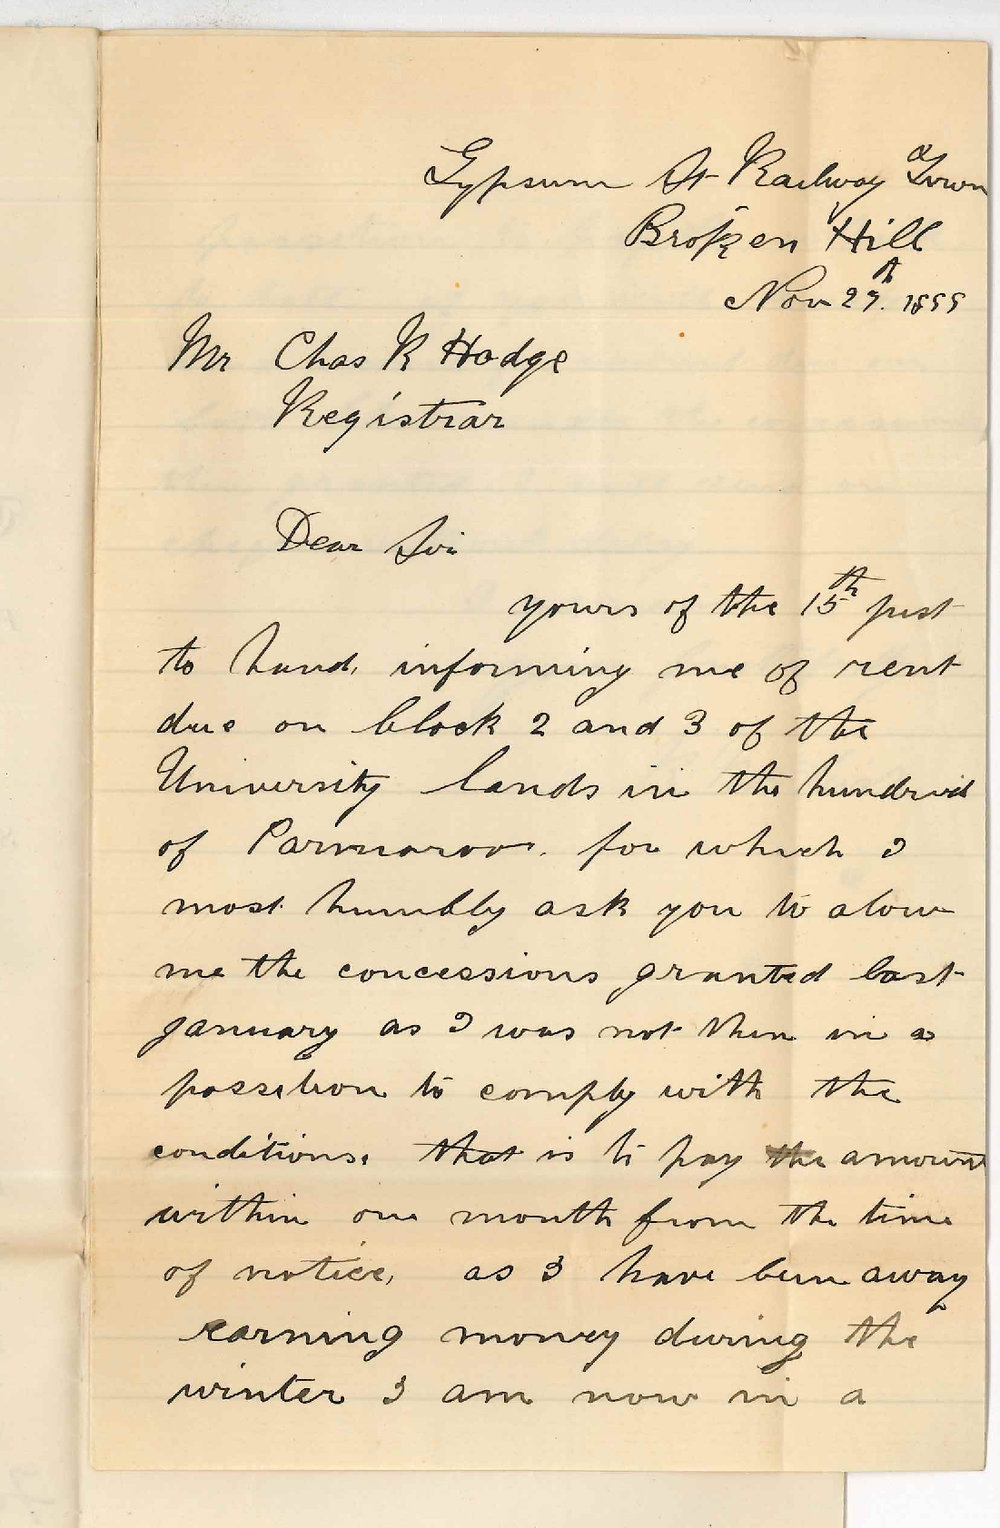 Gypsum St Railway Town
Broken Hill
Nov 27th. 1899
Mr Chas R Hodge
Registrar
Dear Sir
yours of the 15th just
to hand, informing me of rent
due on block 2 and 3 of the
University lands in the hundred
of Parnaroo. for which I
most humbly ask you to alow
me the concessions granted last
january as I was not then in a
possetion to comply with the
conditions. that is to pay the amount
within one month from the time
of notice, as I have been away
earning money during the
winter I am now in a